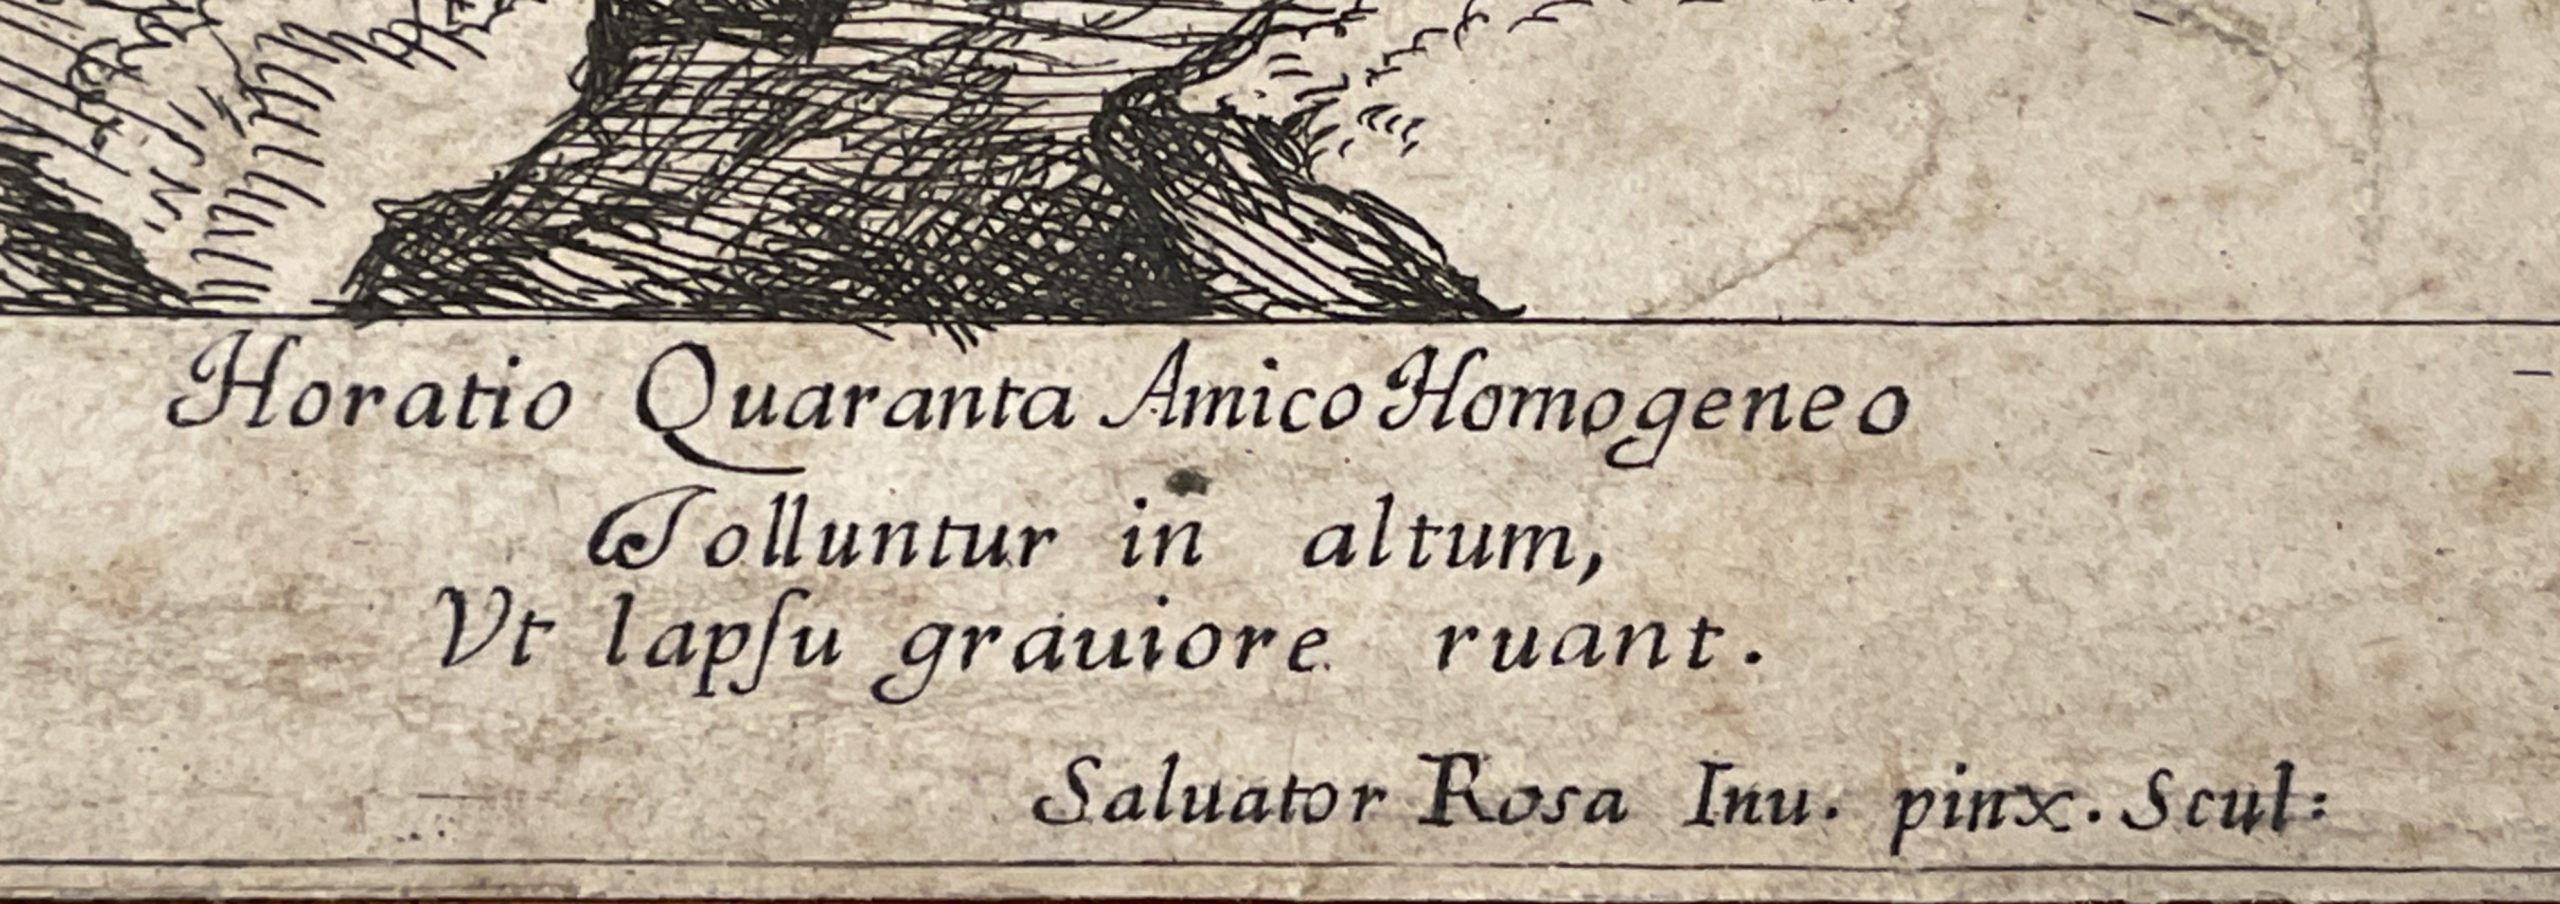 Horatio Quaranta Amico Homogeneo
Tolluntur in altum,
Vt lapſu grauiore ruant.
Saluator Rosa Inu. pinx. Scul: